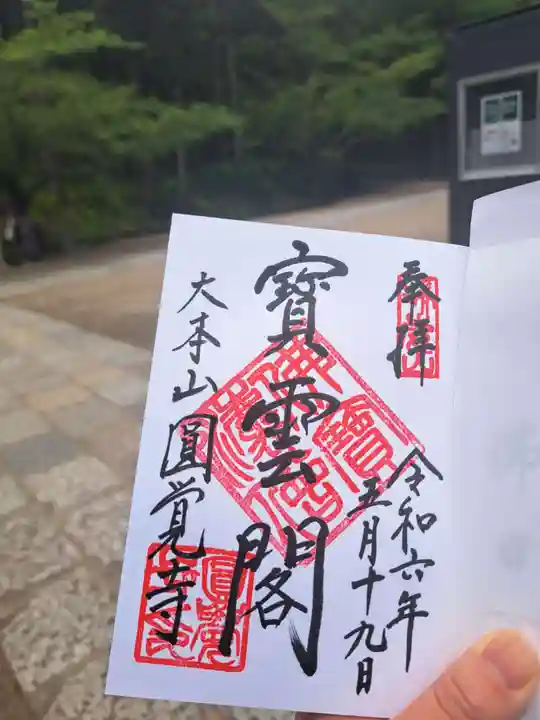 奉拝
令和六年
五月十九日
寶雲閣
大本山圓覚寺
佛法僧寶